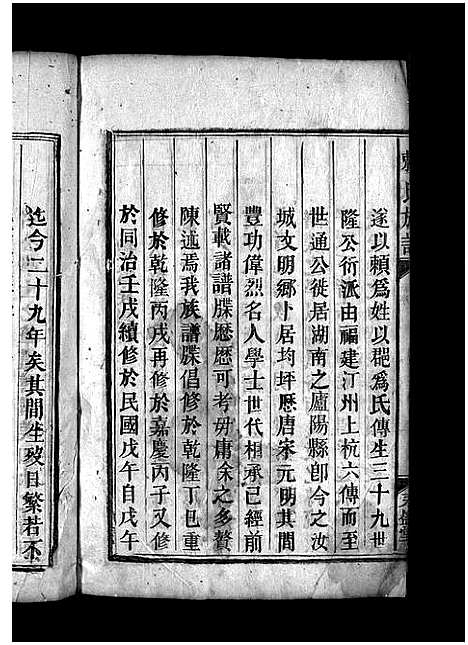 遂以賴爲姓以郡爲氏傳生三十九世
隆公衍派由福建汀州上杭六傳而至
世通公徙居湖南之廬陽縣卽今之汝
城文明鄉卜居均坪歷唐宋元明其間
豐功偉烈名人學士世代相承已經前
賢載諸譜牒歷歷可考毋庸余之多贅
陳述焉我族譜牒倡修於乾隆丁巳重
修於乾隆丙戌再修於嘉慶丙子又修
於同治壬戌續修於民國戊午自戊午
迄今二十九年矣其間生歿日繁若不